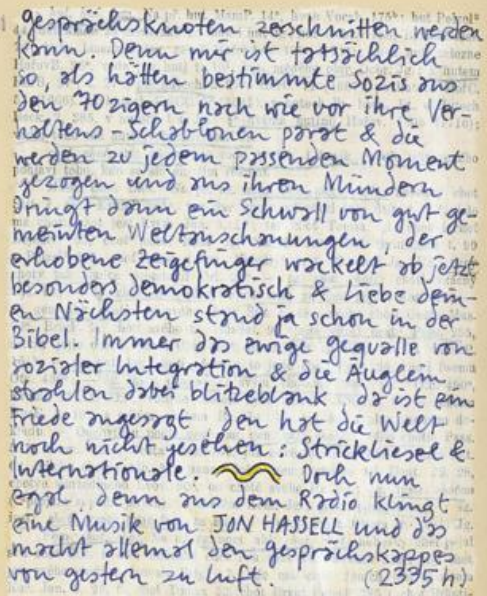 gesprächsknoten zerschnitten werden
kann. Denn mir ist tatsächlich
so, als hätten bestimmte Sozis aus
den 70zigern nach wie vor ihre Ver-
haltens-Schablonen parat & die
werden zu jedem passenden Moment
gezogen und aus ihren Mündern
dringt dann ein Schwall von gut ge-
meinten Weltanschauungen der
erhobene Zeigefinger wackelt ab jetzt
besonders demokratisch & Liebe dein-
en Nächsten stand ja schon in der
Bibel. Immer das ewige gequalle von
sozialer Integration & die Äuglein
strahlen dabei blitzeblank da ist ein
Friede angesagt den hat die Welt
noch nicht gesehen: Strickliesel &
Internationale. Doch nun
egal denn aus dem Radio klingt
eine Musik von JON HASSELL und das
macht allemal den gesprächskappes
von gestern zu luft. (2335 h)